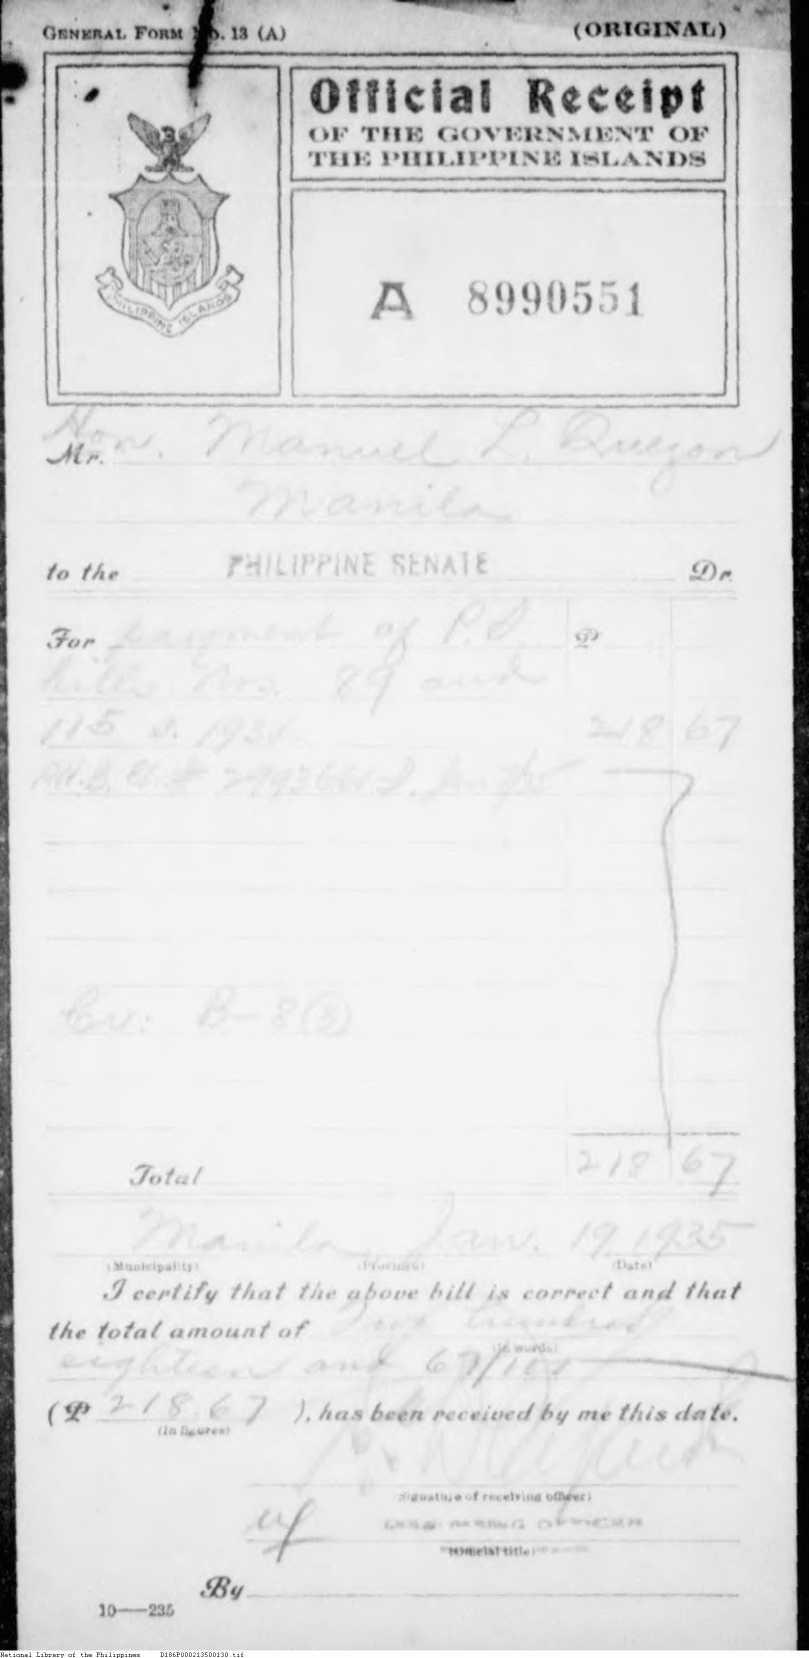 GENERAL FORM No. 13 (A) (ORIGINAL)
Official Receipt
OF THE GOVERNMENT OF
THE PHILIPPINE ISLANDS
PHILIPPINE ISLANDS
A 8990551
Hon. Manuel L. Quezon
Mr.
Manila
to the PHILIPPINE SENATE Dr.
For payment of P.S. ₱
bills Nos. 89 and
115 s. 1934 218 67
Cv: B-8(8)
Total 218 67
Manila, Jan. 19, 1935
(Municipality) (Province) (Date)
I certify that the above bill is correct and that
the total amount of Two hundred
(In words)
eighteen and 67/100
(₱ 218.67 ), has been received by me this date.
(In figures)
(Signature of receiving officer)
DISBURSING OFFICER
(Official title)
By
10—235
National Library of the Philippines D186P000213500130.tif